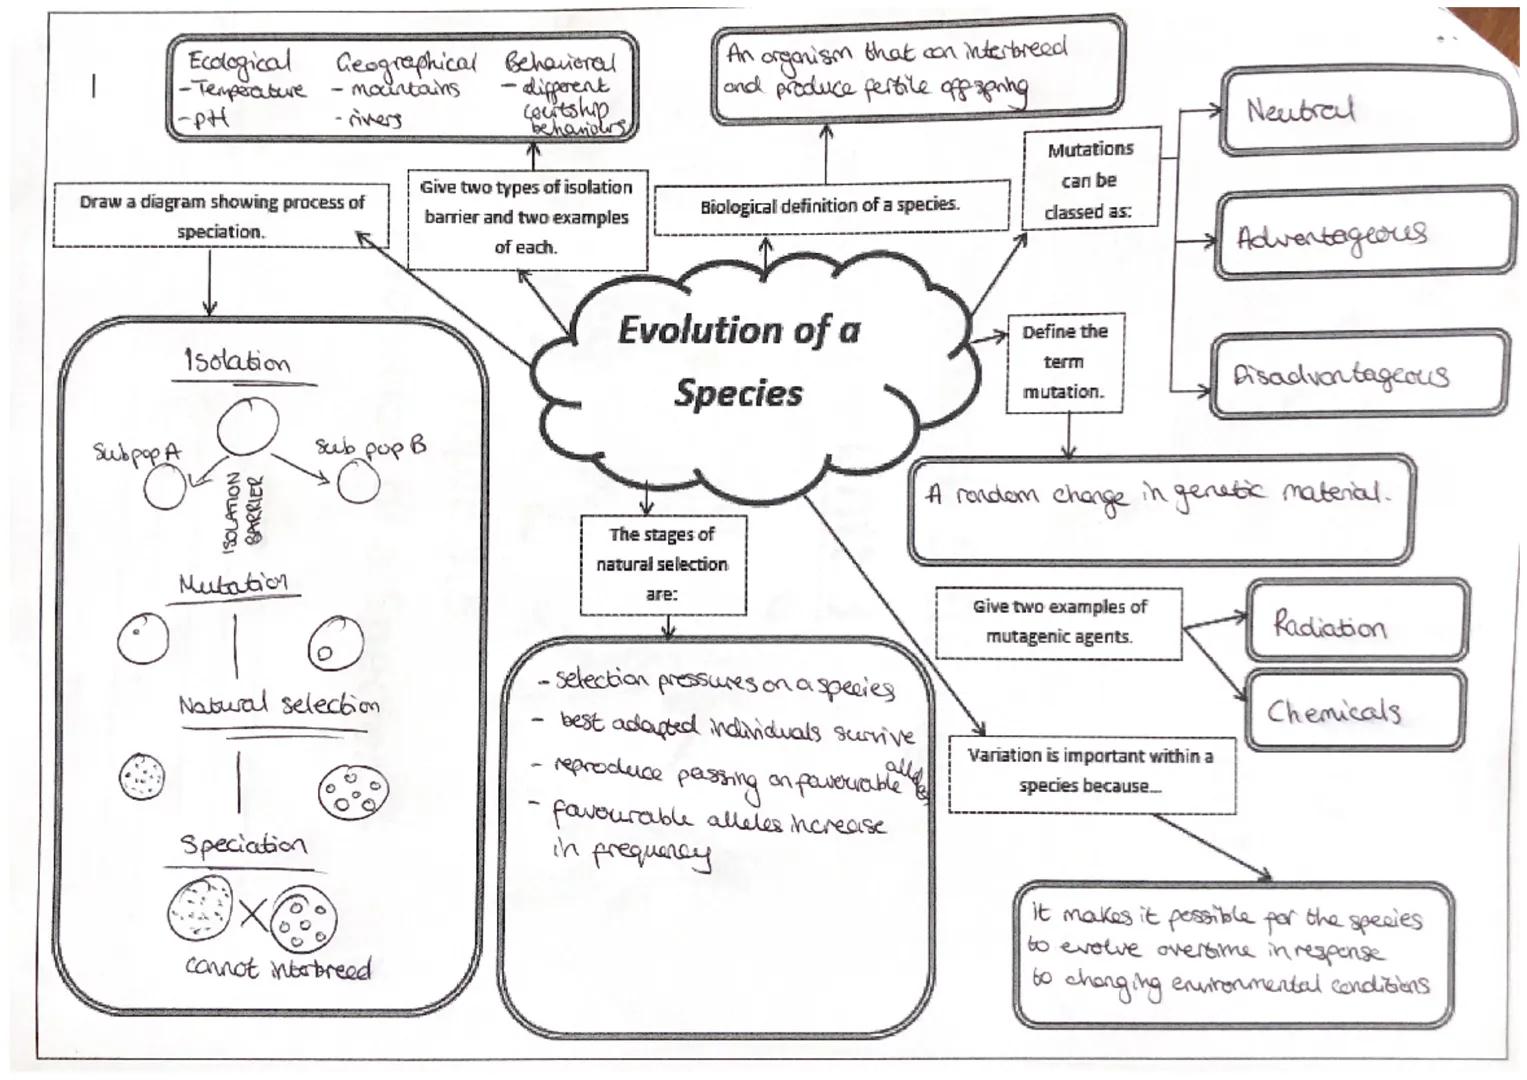 Ecological Geographical Behavioral
- Temperature - mountains - different
- pH - rivers courtship
behaviours
An organism that can interbreed
and produce fertile offspring
Neutral
Mutations
can be
classed as:
Draw a diagram showing process of
speciation.
Give two types of isolation
barrier and two examples
of each.
Biological definition of a species.
Advantageous
Evolution of a
Species
Define the
term
mutation.
Disadvantageous
Isolation
Sub pop A
Sub pop B
ISOLATION
BARRIER
Mutation
Natural selection
Speciation
X
cannot interbreed
A random change in genetic material.
The stages of
natural selection
are:
- Selection pressures on a species
- best adapted individuals survive
- reproduce passing on favourable alleles
- favourable alleles increase
in frequency
Give two examples of
mutagenic agents.
Radiation
Chemicals
Variation is important within a
species because...
it makes it possible for the species
to evolve overtime in response
to changing environmental conditions